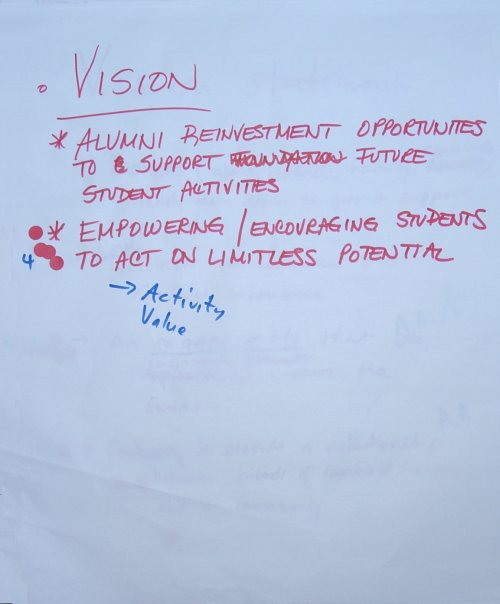 VISION
* ALUMNI REINVESTMENT OPPORTUNITES
TO & SUPPORT FOUNDATION FUTURE
STUDENT ACTIVITIES
* EMPOWERING / ENCOURAGING STUDENTS
4 TO ACT ON LIMITLESS POTENTIAL
→ Activity
Value